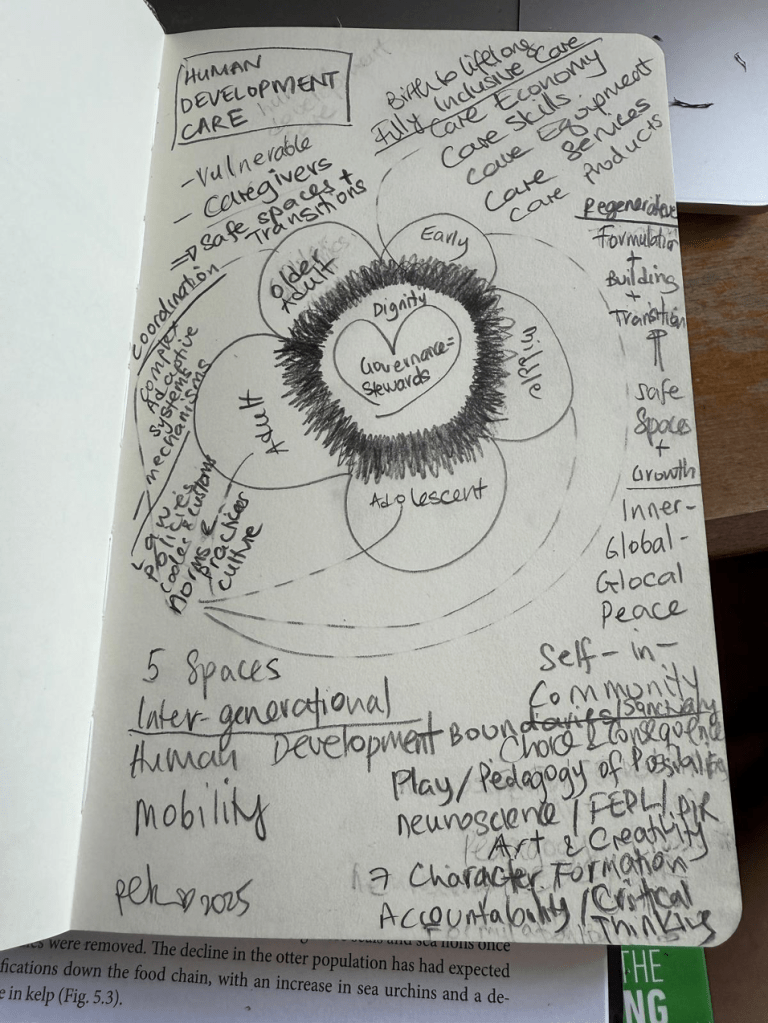 HUMAN
DEVELOPMENT
CARE
- Vulnerable
- Caregivers
=> Safe spaces +
Transitions
Birth to lifelong
Fully Inclusive Care
Care Economy
Care Skills
Care Equipment
Care Services
Care Products
Regenerative
Formulation
+
Building
+
Transition
Safe
Spaces
+
Growth
Inner-
Global-
Glocal
Peace
Coordination
Complex
Adaptive
systems
mechanisms
Law
policies
codes & customs
Norms &
practices
culture
Older
Adult
Early
Adult
Adolescent
Dignity
Governance =
Stewards
5 Spaces
Inter-generational
Human Development
Mobility
Self-in-
Community
Boundaries/Sanctuary
Choice & Consequence
Play/Pedagogy of Possibilities
neuroscience / FEPL /
Art & Creativity
7 Character Formation
Accountability / Critical
Thinking
pek♡2025
were removed. The decline in the otter population has had expected
fications down the food chain, with an increase in sea urchins and a de-
e in kelp (Fig. 5.3).
THE
NG